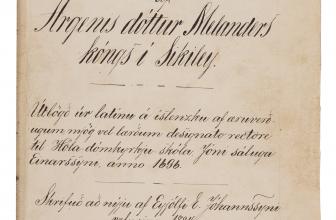 Argenis dóttur Melanders
kóngs í Sikiley.
Útlögð úr latínu á íslenzku af æruverð-
ugum og vel lærðum designato rectore
til Hóla dómkyrkju skóla, Jóni sáluga
Einarssyni, anno 1696.
Skrifuð að nýju af Eyjólfi E. Jóhannssyni